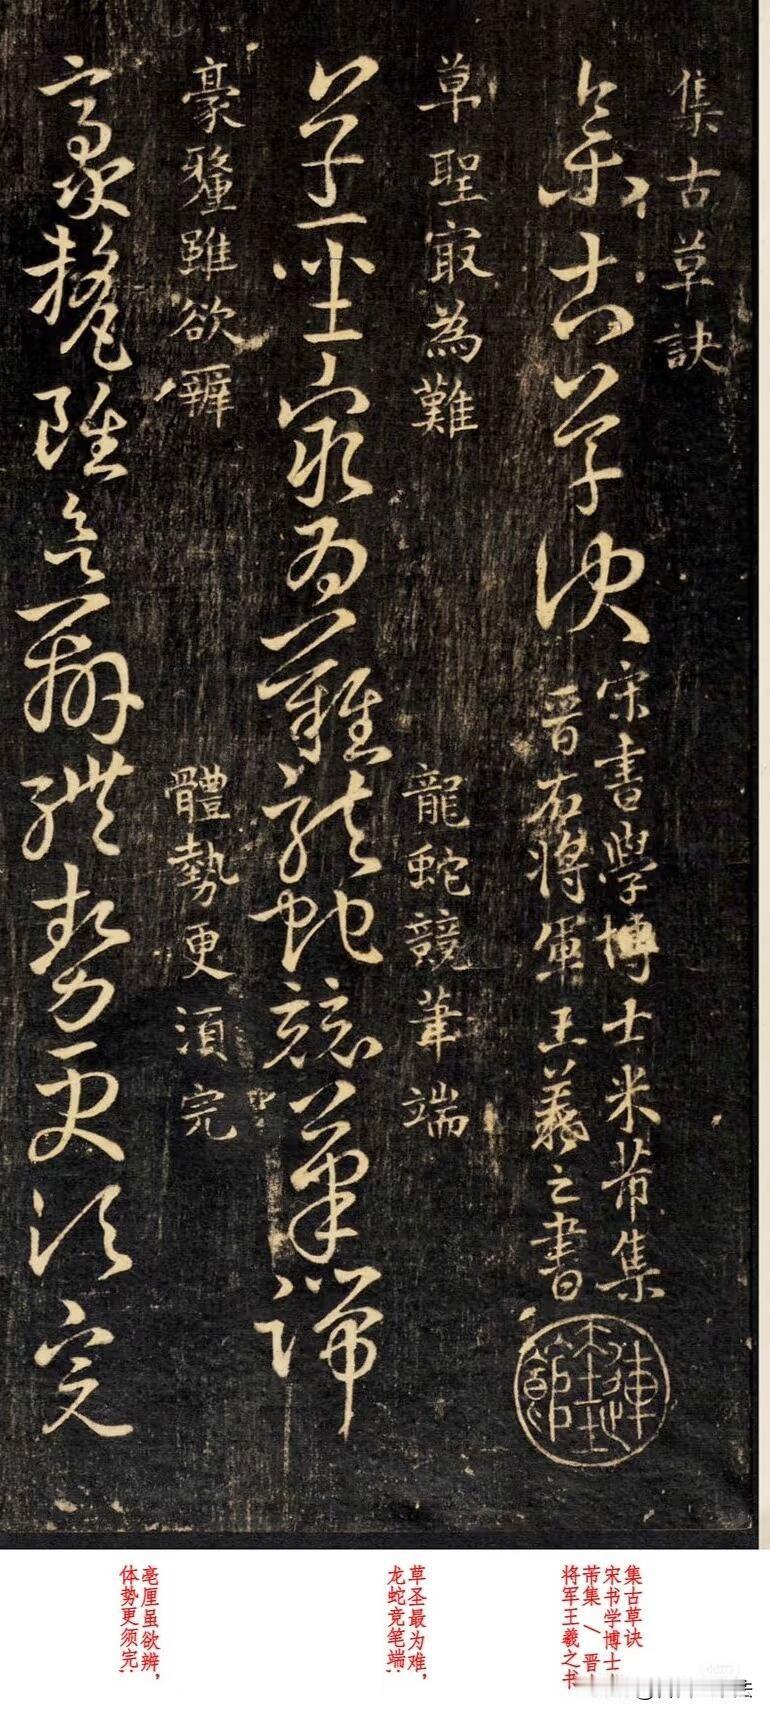 集古草訣
集古草訣
宋書學博士米芾集
晋右將軍王羲之書
草聖㝡為難
龍蛇競筆端
草聖㝡為難龍蛇競筆端
豪釐雖欲辨
體勢更須完
豪釐雖欲辨體勢更須完
集古草诀
宋书学博士
芾集/晋
将军王羲之书
草圣最为难，
龙蛇竞笔端；
亳厘虽欲辨，
体势更须完；
小红书